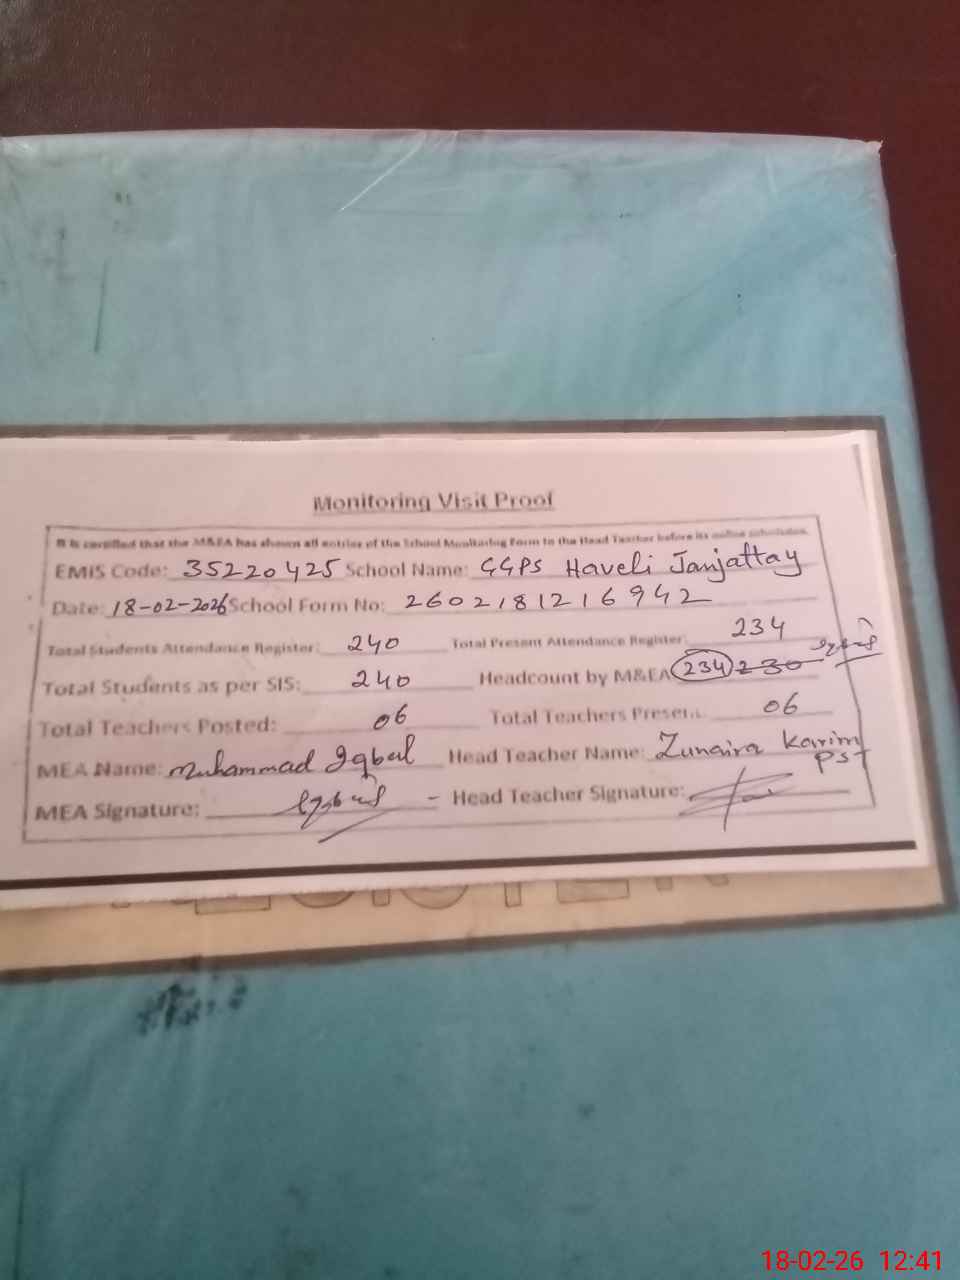 Monitoring Visit Proof
It is certified that the M&EA has shown all entries of the School Monitoring Form to the Head Teacher before its online submission.
EMIS Code: 35220425 School Name: GGPS Haveli Janjattay
Date: 18-02-2026 School Form No: 2602181216942
Total Students Attendance Register: 240 Total Present Attendance Register: 234
Total Students as per SIS: 240 Headcount by M&EA 234 230
Total Teachers Posted: 06 Total Teachers Present: 06
MEA Name: Muhammad Iqbal Head Teacher Name: Zunaira Karim
PST
MEA Signature: Head Teacher Signature:
18-02-26 12:41